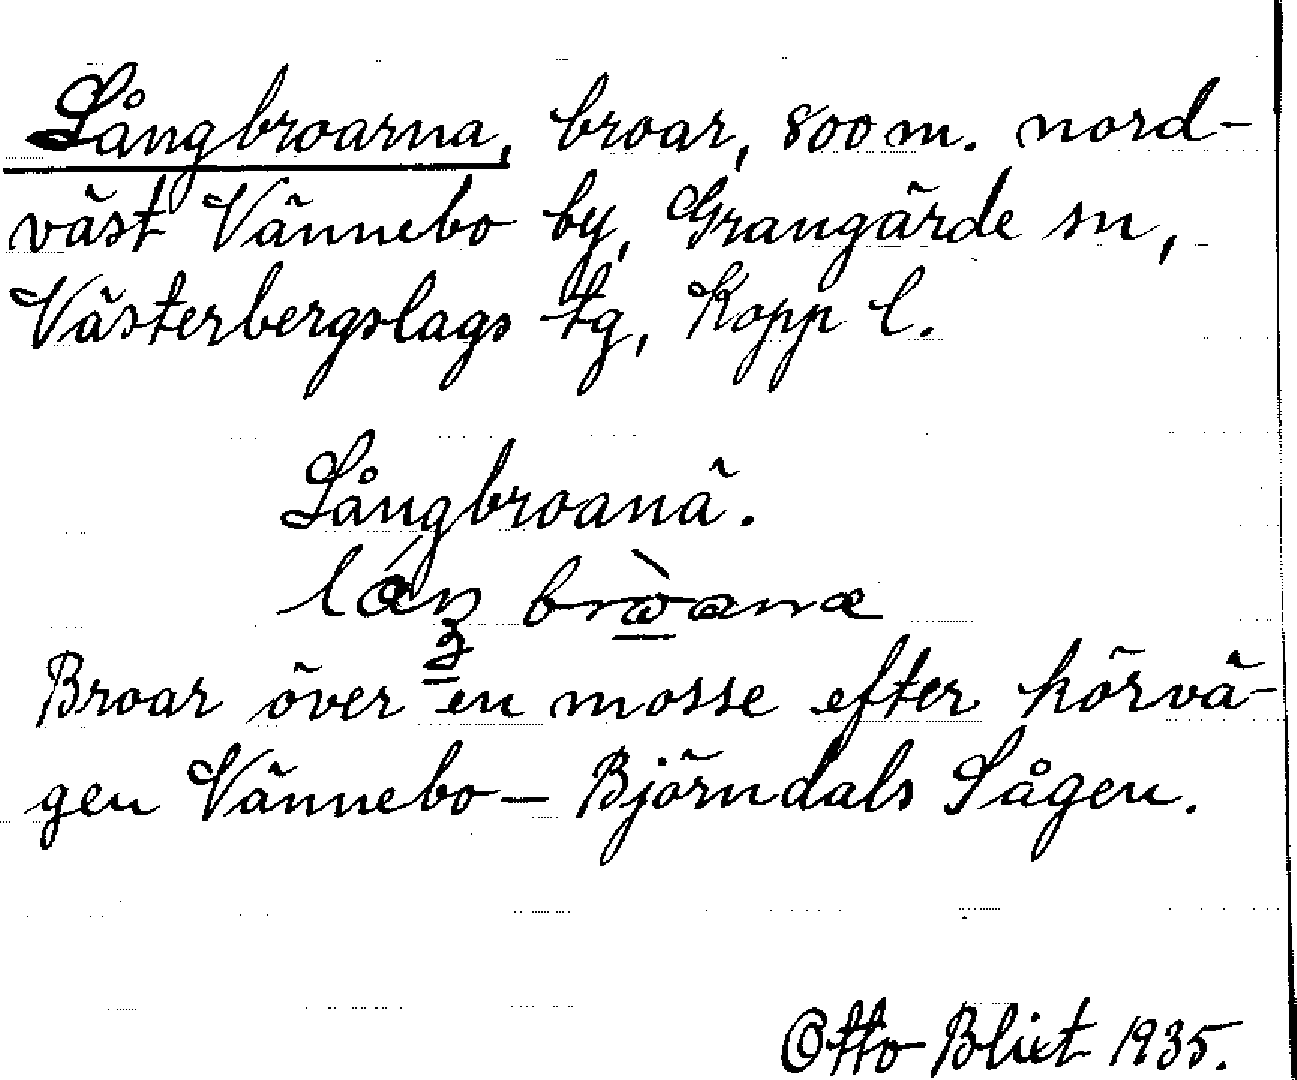 Långbroarna, broar, 800 m. nord-
väst Vännebo by, Grangärde sn,
Västerbergslags tg, Kopp l.
Långbroanä.
Broar över en mosse efter körvä-
gen Vännebo – Björndals Sågen.
Otto Blixt 1935.